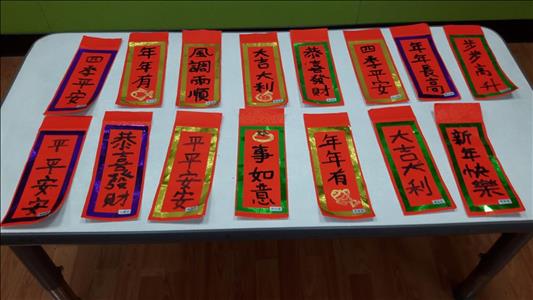 四季平安
年年有
風調雨順
大吉大利
恭喜發財
四季平安
年年長高
步步高升
平平安安
恭喜發財
平平安安
事如意
年年有
大吉大利
新年快樂